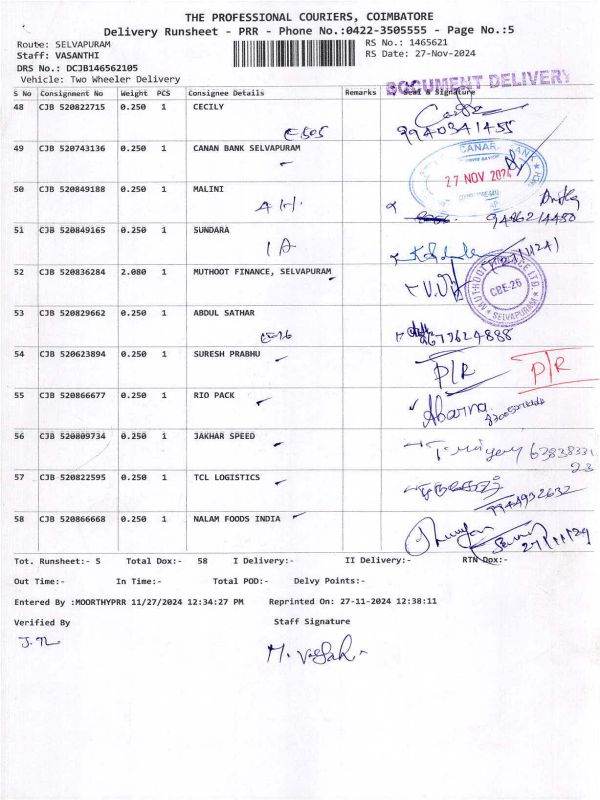 THE PROFESSIONAL COURIERS, COIMBATORE
Delivery Runsheet - PRR - Phone No.:0422-3505555 - Page No.:5
Route: SELVAPURAM
RS No.: 1465621
Staff: VASANTHI
RS Date: 27-Nov-2024
DRS No.: DCJB146562105
Vehicle: Two Wheeler Delivery
DOCUMENT DELIVERY
S No Consignment No Weight PCS Consignee Details Remarks Seal & Signature
48 CJB 520822715 0.250 1 CECILY
9940341455
49 CJB 520743136 0.250 1 CANAN BANK SELVAPURAM
CANAR BANK
27 NOV 2024
50 CJB 520849188 0.250 1 MALINI
A H.
9486214480
51 CJB 520849165 0.250 1 SUNDARA
1 A
52 CJB 520836284 2.080 1 MUTHOOT FINANCE, SELVAPURAM
CBE-26
SELVAPURAM
53 CJB 520829662 0.250 1 ABDUL SATHAR
54 CJB 520623894 0.250 1 SURESH PRABHU P/R P/R
55 CJB 520866677 0.250 1 RIO PACK Abarna
56 CJB 520809734 0.250 1 JAKHAR SPEED
57 CJB 520822595 0.250 1 TCL LOGISTICS
9944932632
58 CJB 520866668 0.250 1 NALAM FOODS INDIA
27/11/24
Tot. Runsheet:- 5 Total Dox:- 58 I Delivery:- II Delivery:- RTN Dox:-
Out Time:- In Time:- Total POD:- Delvy Points:-
Entered By :MOORTHYPRR 11/27/2024 12:34:27 PM Reprinted On: 27-11-2024 12:38:11
Verified By Staff Signature